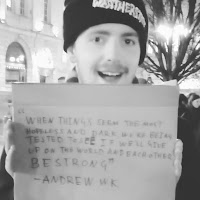 "WHEN THINGS SEEM THE MOST
HOPELESS AND DARK WE'RE BEING
TESTED TO SEE IF WE'LL GIVE
UP ON THE WORLD AND EACH OTHER
BE STRONG"
-ANDREW W.K.